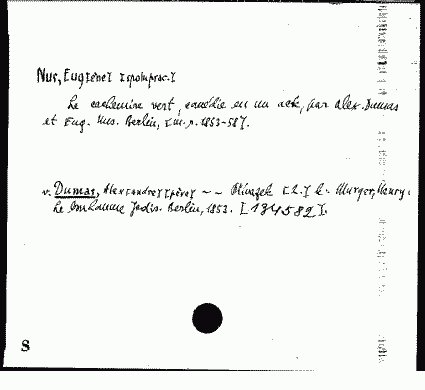 Nus, Eug[ène] [spoluprac.]
Le cachemire vert, comédie en un acte, par Alex. Dumas
et Eug. Nus. Berlin, [m. r. 1853-58].
v. Dumas, Alexandre [père] -- Přívazek [2.] k: Murger, Henry:
Le Bonhomme Jadis. Berlin, 1853. [134582].
S